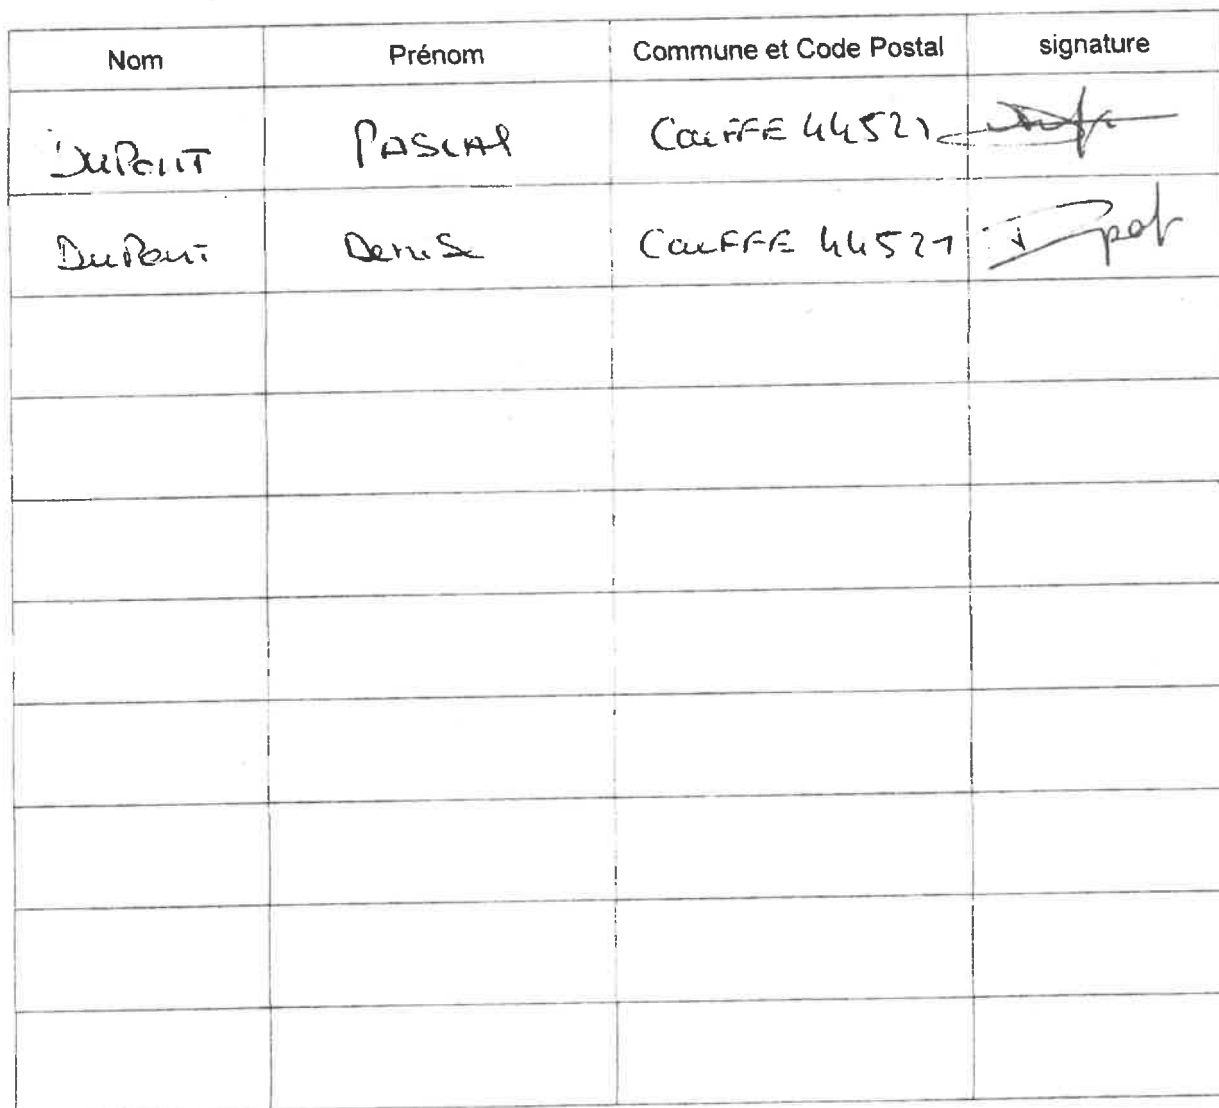 Nom Prénom Commune et Code Postal signature
DuPont PASCAL CouFFE 44521
DuPont Denise CouFFE 44521